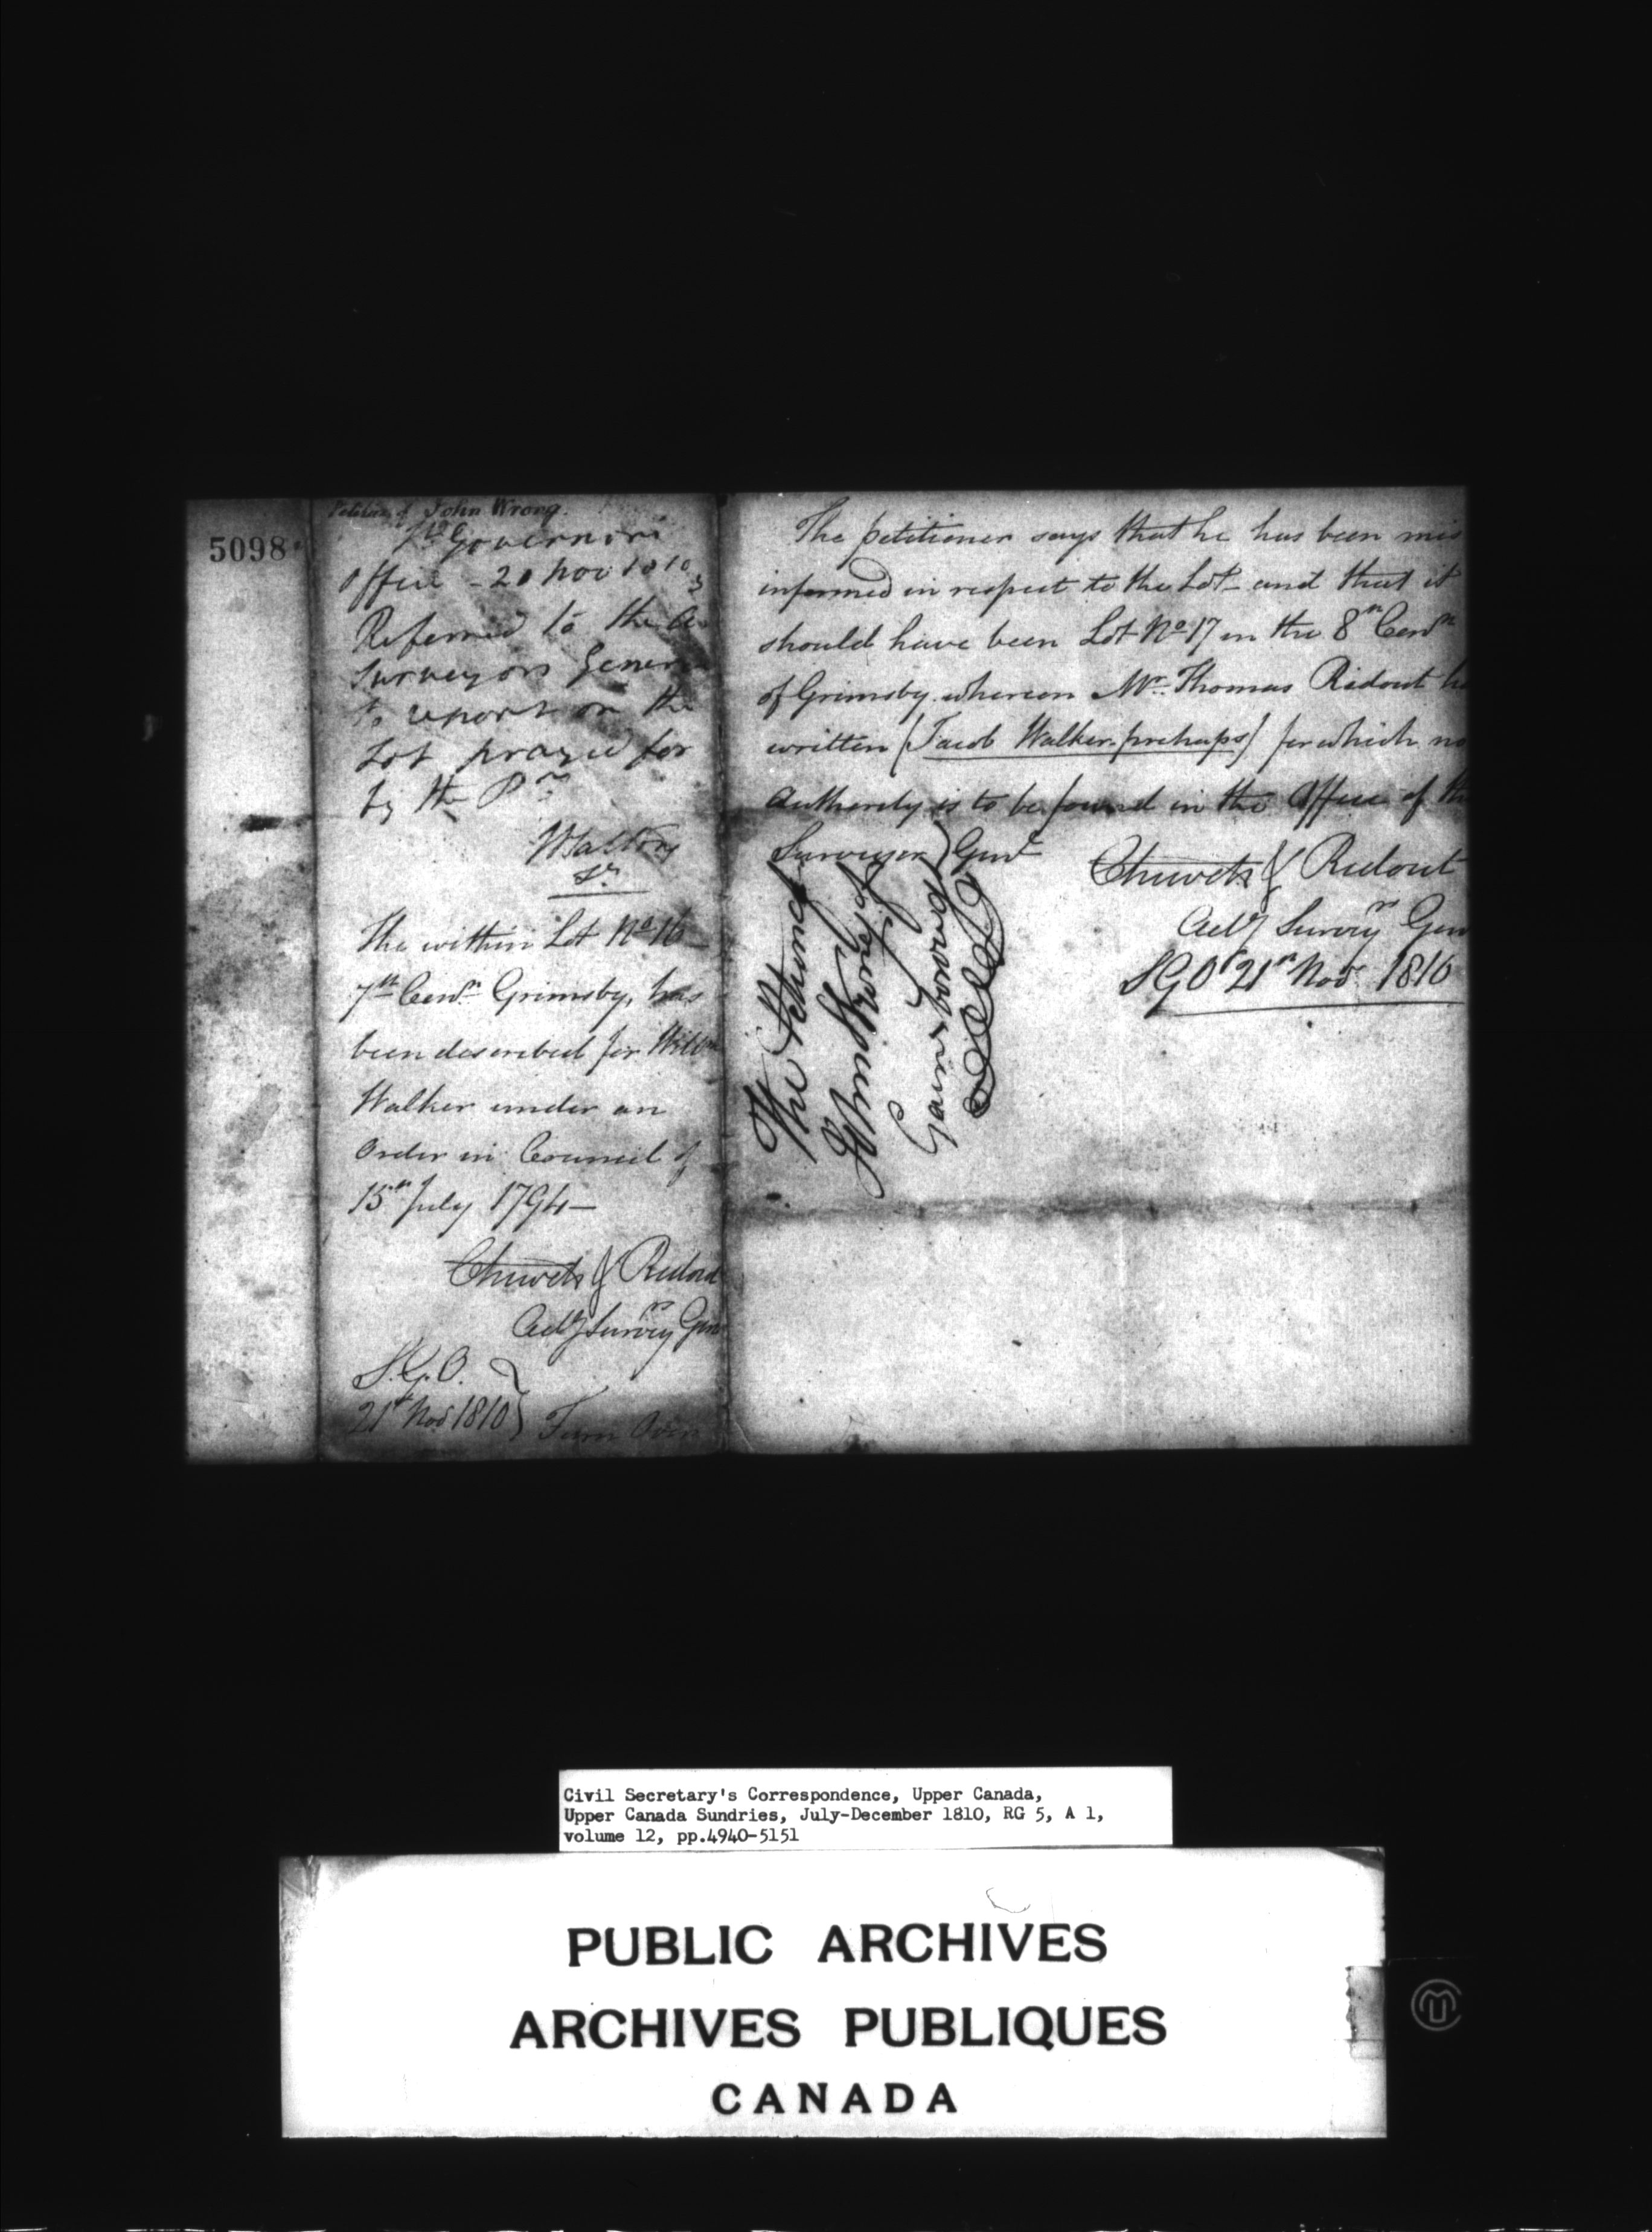 5098
Petition of John Wrong.
Lt. Governors
Office - 20 Nov 1810
Referred to the
Surveyors Gener
to report on the
Lot prayed for
by the Pr
The within Lot No. 16
7th Conn. Grimsby, has
been described for
Walker under an
Order in Council of
15th July 1794 -
Chewett & Ridout
Actg Survey rs Gen
S.G.O.
21st Nov 1810
Turn Over
The petitioner says that he has been mis
informed in respect to the Lot - and that it
should have been Lot No. 17 in the 8th Conn
of Grimsby. whereon Mr. Thomas Ridout
written (Jacob Walker perhaps) for which no
Authority is to be found in the Office of the
Surveyor Genl
Chewett & Ridout
Actg Survey rs Gen
SGO 21st Nov. 1810
The Petition of
John Wrong of
Gainsborough
Civil Secretary's Correspondence, Upper Canada,
Upper Canada Sundries, July-December 1810, RG 5, A 1,
volume 12, pp.4940-5151
PUBLIC ARCHIVES
ARCHIVES PUBLIQUES
CANADA